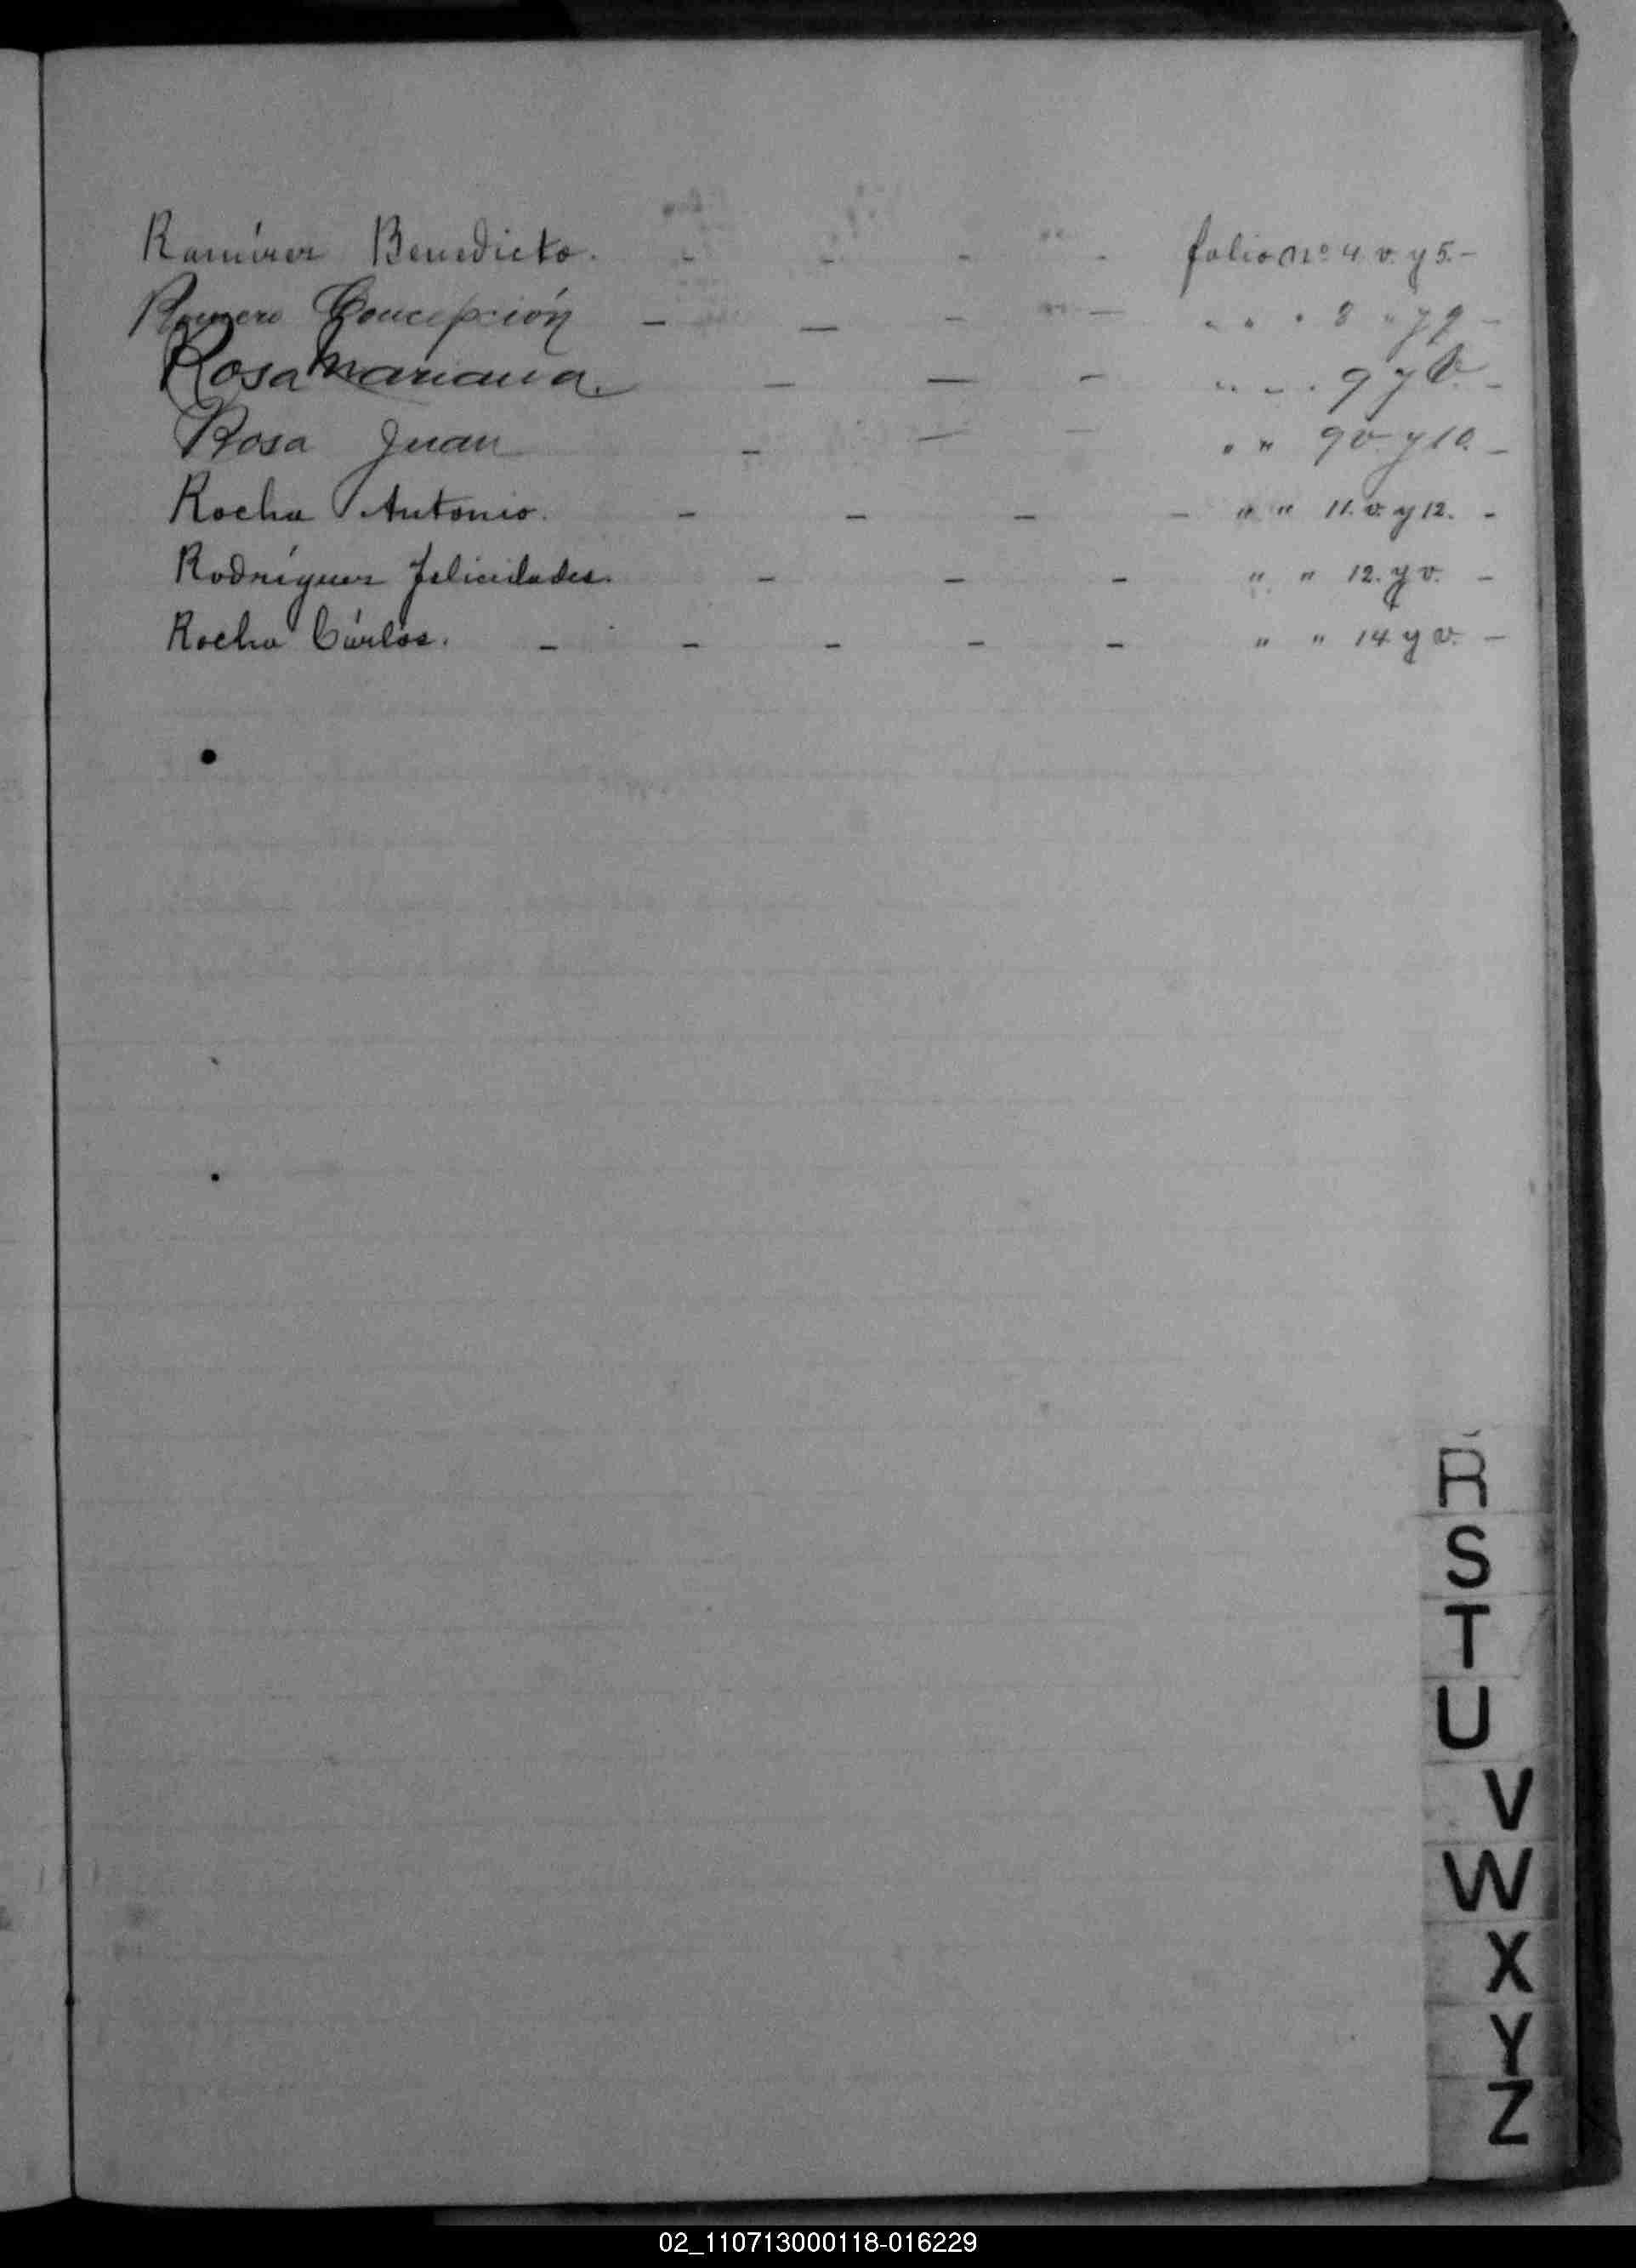 Ramírez Benedicto. - - - - folio nº 4 v. y 5.-
Romero Concepción - - - - " " " 8 " y 9 -
Rosa Mariana. - - - " " " 9 y v. -
Rosa Juan - - - " " 9 v. y 10. -
Rocha Antonio. - - - - " " 11. v. y 12. -
Rodríguez Felicidades. - - - " " 12. y v. -
Rocha Cárlos. - - - - - " " 14 y v. -
R
S
T
U
V
W
X
Y
Z
02_110713000118-016229